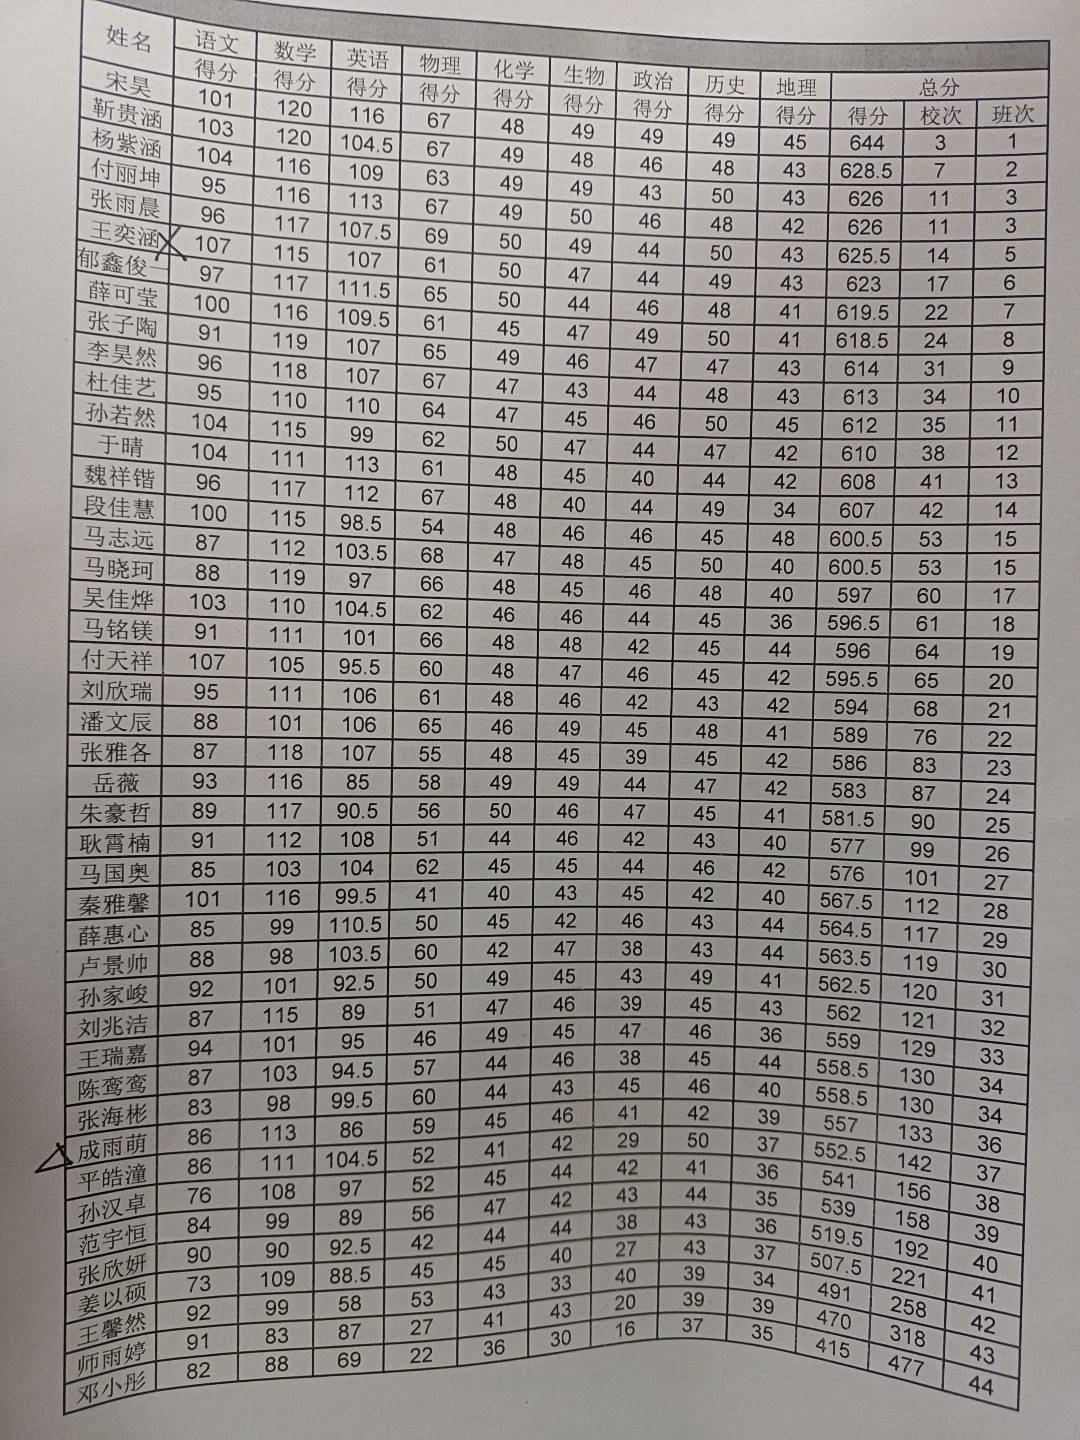 姓名 语文 数学 英语 物理 化学 生物 政治 历史 地理 总分
得分 得分 得分 得分 得分 得分 得分 得分 得分 得分 校次 班次
宋昊 101 120 116 67 48 49 49 49 45 644 3 1
靳贵涵 103 120 104.5 67 49 48 46 48 43 628.5 7 2
杨紫涵 104 116 109 63 49 49 43 50 43 626 11 3
付丽坤 95 116 113 67 49 50 46 48 42 626 11 3
张雨晨 96 117 107.5 69 50 49 44 50 43 625.5 14 5
王奕涵 107 115 107 61 50 47 44 49 43 623 17 6
郁鑫俊一 97 117 111.5 65 50 44 46 48 41 619.5 22 7
薛可莹 100 116 109.5 61 45 47 49 50 41 618.5 24 8
张子陶 91 119 107 65 49 46 47 47 43 614 31 9
李昊然 96 118 107 67 47 43 44 48 43 613 34 10
杜佳艺 95 110 110 64 47 45 46 50 45 612 35 11
孙若然 104 115 99 62 50 47 44 47 42 610 38 12
于晴 104 111 113 61 48 45 40 44 42 608 41 13
魏祥锴 96 117 112 67 48 40 44 49 34 607 42 14
段佳慧 100 115 98.5 54 48 46 46 45 48 600.5 53 15
马志远 87 112 103.5 68 47 48 45 50 40 600.5 53 15
马晓珂 88 119 97 66 48 45 46 48 40 597 60 17
吴佳烨 103 110 104.5 62 46 46 44 45 36 596.5 61 18
马铭镁 91 111 101 66 48 48 42 45 44 596 64 19
付天祥 107 105 95.5 60 48 47 46 45 42 595.5 65 20
刘欣瑞 95 111 106 61 48 46 42 43 42 594 68 21
潘文辰 88 101 106 65 46 49 45 48 41 589 76 22
张雅各 87 118 107 55 48 45 39 45 42 586 83 23
岳薇 93 116 85 58 49 49 44 47 42 583 87 24
朱豪哲 89 117 90.5 56 50 46 47 45 41 581.5 90 25
耿霄楠 91 112 108 51 44 46 42 43 40 577 99 26
马国奥 85 103 104 62 45 45 44 46 42 576 101 27
秦雅馨 101 116 99.5 41 40 43 45 42 40 567.5 112 28
薛惠心 85 99 110.5 50 45 42 46 43 44 564.5 117 29
卢景帅 88 98 103.5 60 42 47 38 43 44 563.5 119 30
孙家峻 92 101 92.5 50 49 45 43 49 41 562.5 120 31
刘兆洁 87 115 89 51 47 46 39 45 43 562 121 32
王瑞嘉 94 101 95 46 49 45 47 46 36 559 129 33
陈鸾鸾 87 103 94.5 57 44 46 38 45 44 558.5 130 34
张海彬 83 98 99.5 60 44 43 45 46 40 558.5 130 34
成雨萌 86 113 86 59 45 46 41 42 39 557 133 36
平皓潼 86 111 104.5 52 41 42 29 50 37 552.5 142 37
孙汉卓 76 108 97 52 45 44 42 41 36 541 156 38
范宇恒 84 99 89 56 47 42 43 44 35 539 158 39
张欣妍 90 90 92.5 42 44 44 38 43 36 519.5 192 40
姜以硕 73 109 88.5 45 45 40 27 43 37 507.5 221 41
王馨然 92 99 58 53 43 33 40 39 34 491 258 42
师雨婷 91 83 87 27 41 43 20 39 39 470 318 43
邓小彤 82 88 69 22 36 30 16 37 35 415 477 44